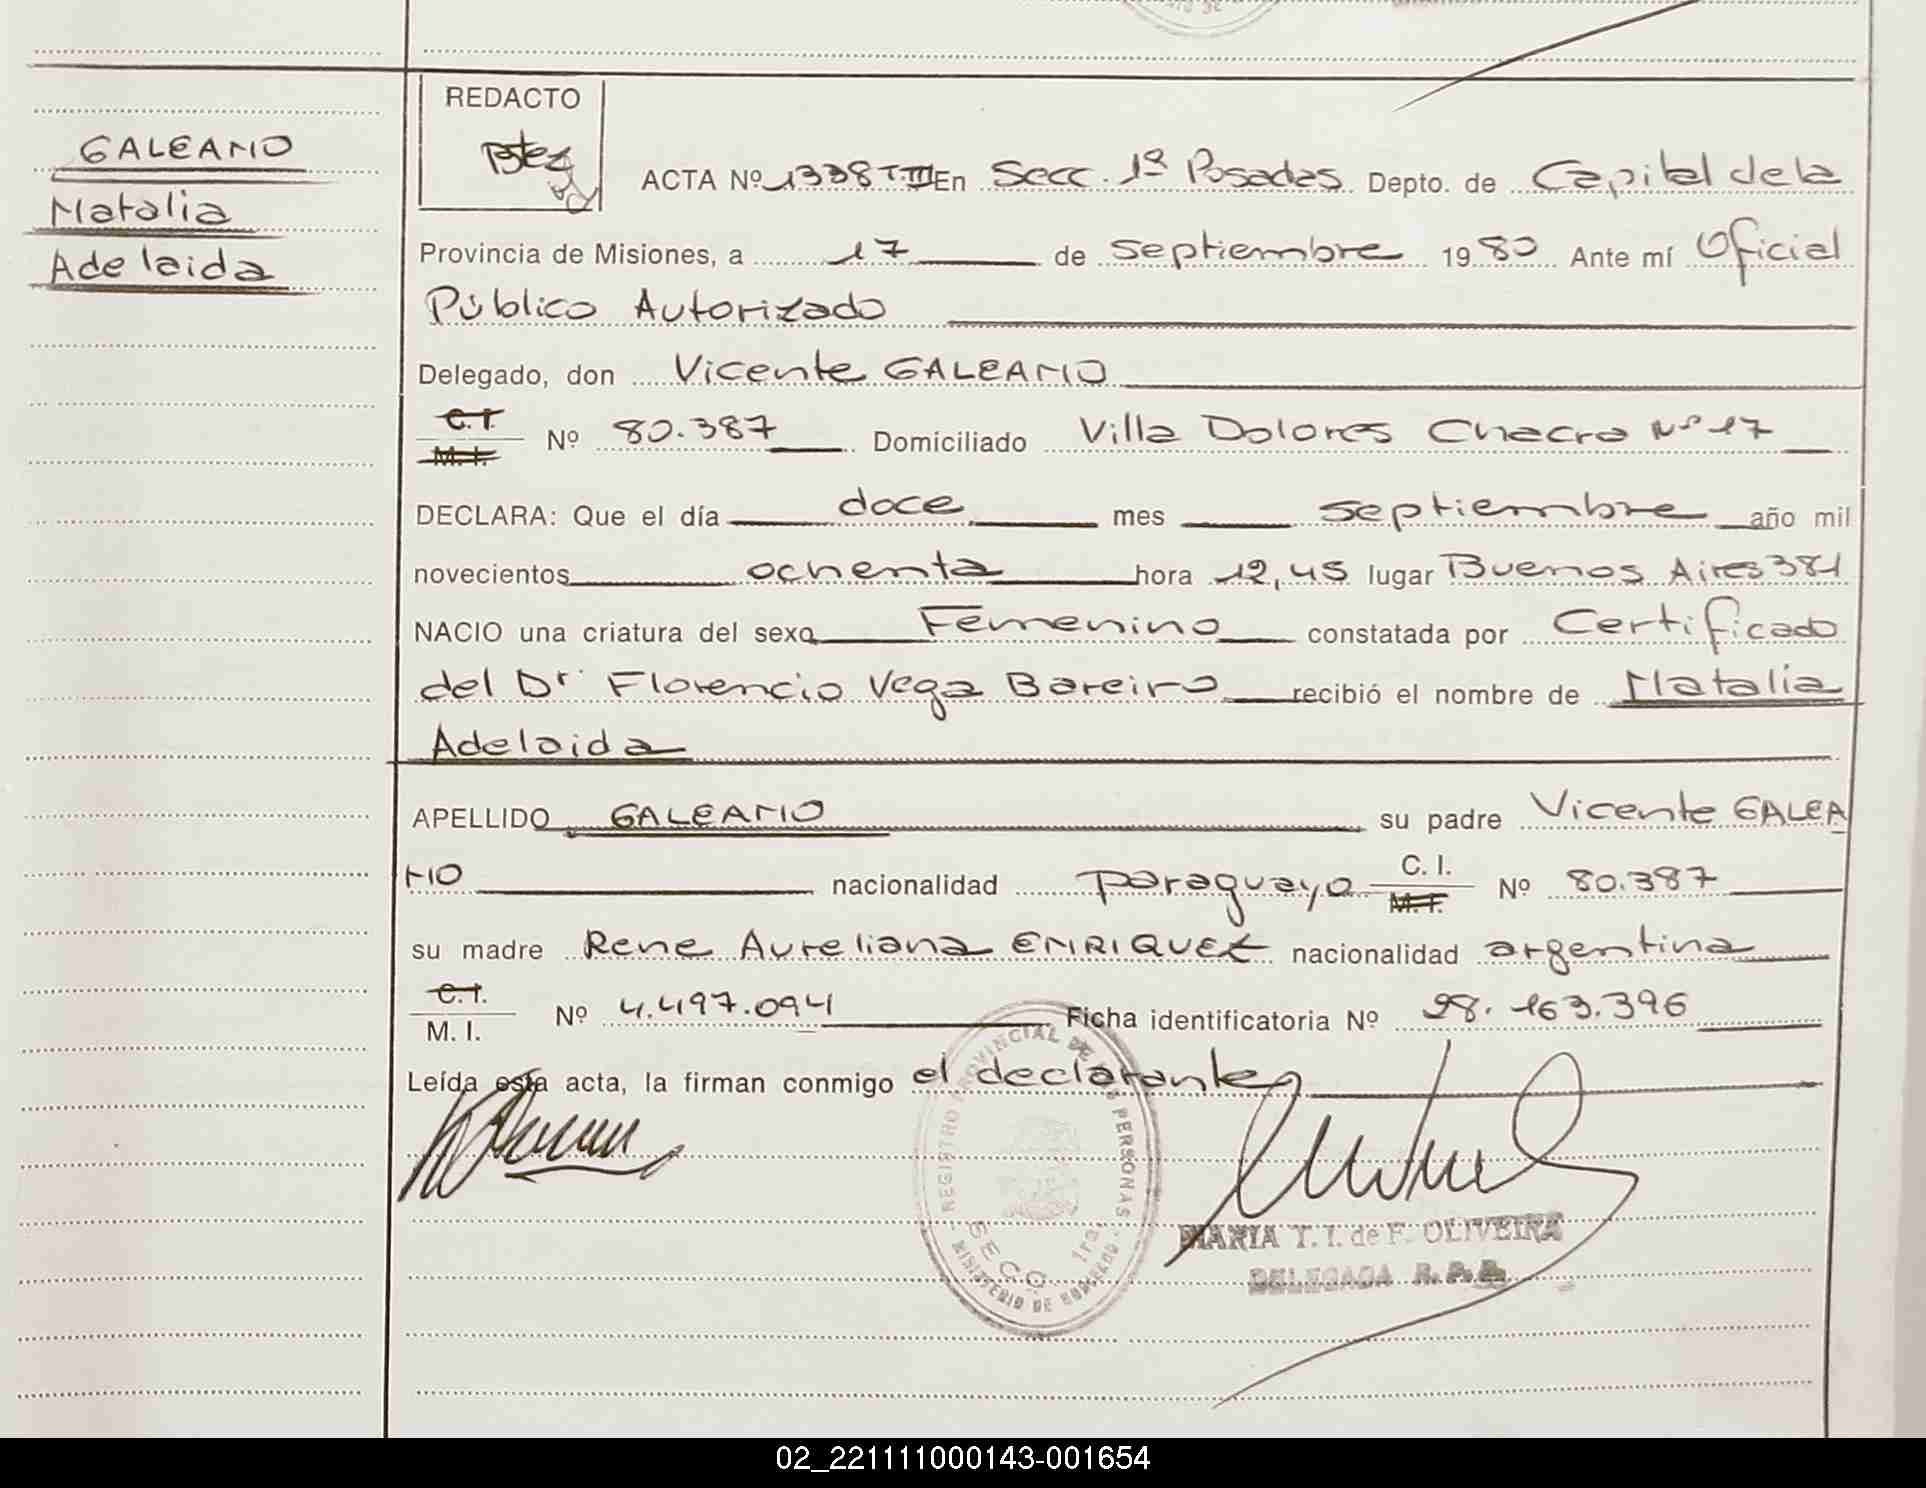 REDACTO
GALEANO
Natalia
Adelaida
ACTA Nº 1338 T III En Secc. 1ª Posadas Depto. de Capital de la
Provincia de Misiones, a 17 de septiembre 1980 Ante mí Oficial
Público Autorizado
Delegado, don Vicente GALEANO
C.I.
M.I. Nº 80.387 Domiciliado Villa Dolores Chacra Nº 17
DECLARA: Que el día doce mes septiembre año mil
novecientos ochenta hora 12,45 lugar Buenos Aires 381
NACIO una criatura del sexo Femenino constatada por Certificado
del Dr. Florencio Vega Bareiro recibió el nombre de Natalia
Adelaida
APELLIDO GALEANO su padre Vicente GALEA
NO nacionalidad paraguayo C. I. M. I. Nº 80.387
su madre Rene Aureliana ENRIQUEZ nacionalidad argentina
C.I.
M. I. Nº 4.497.094 Ficha identificatoria Nº 28.163.396
Leída esta acta, la firman conmigo el declarante
REGISTRO PROVINCIAL DE LAS PERSONAS
SECC. 1ra.
MINISTERIO DE GOBIERNO
MARIA T. I. de F. OLIVEIRA
DELEGADA R. P. P.
02_221111000143-001654